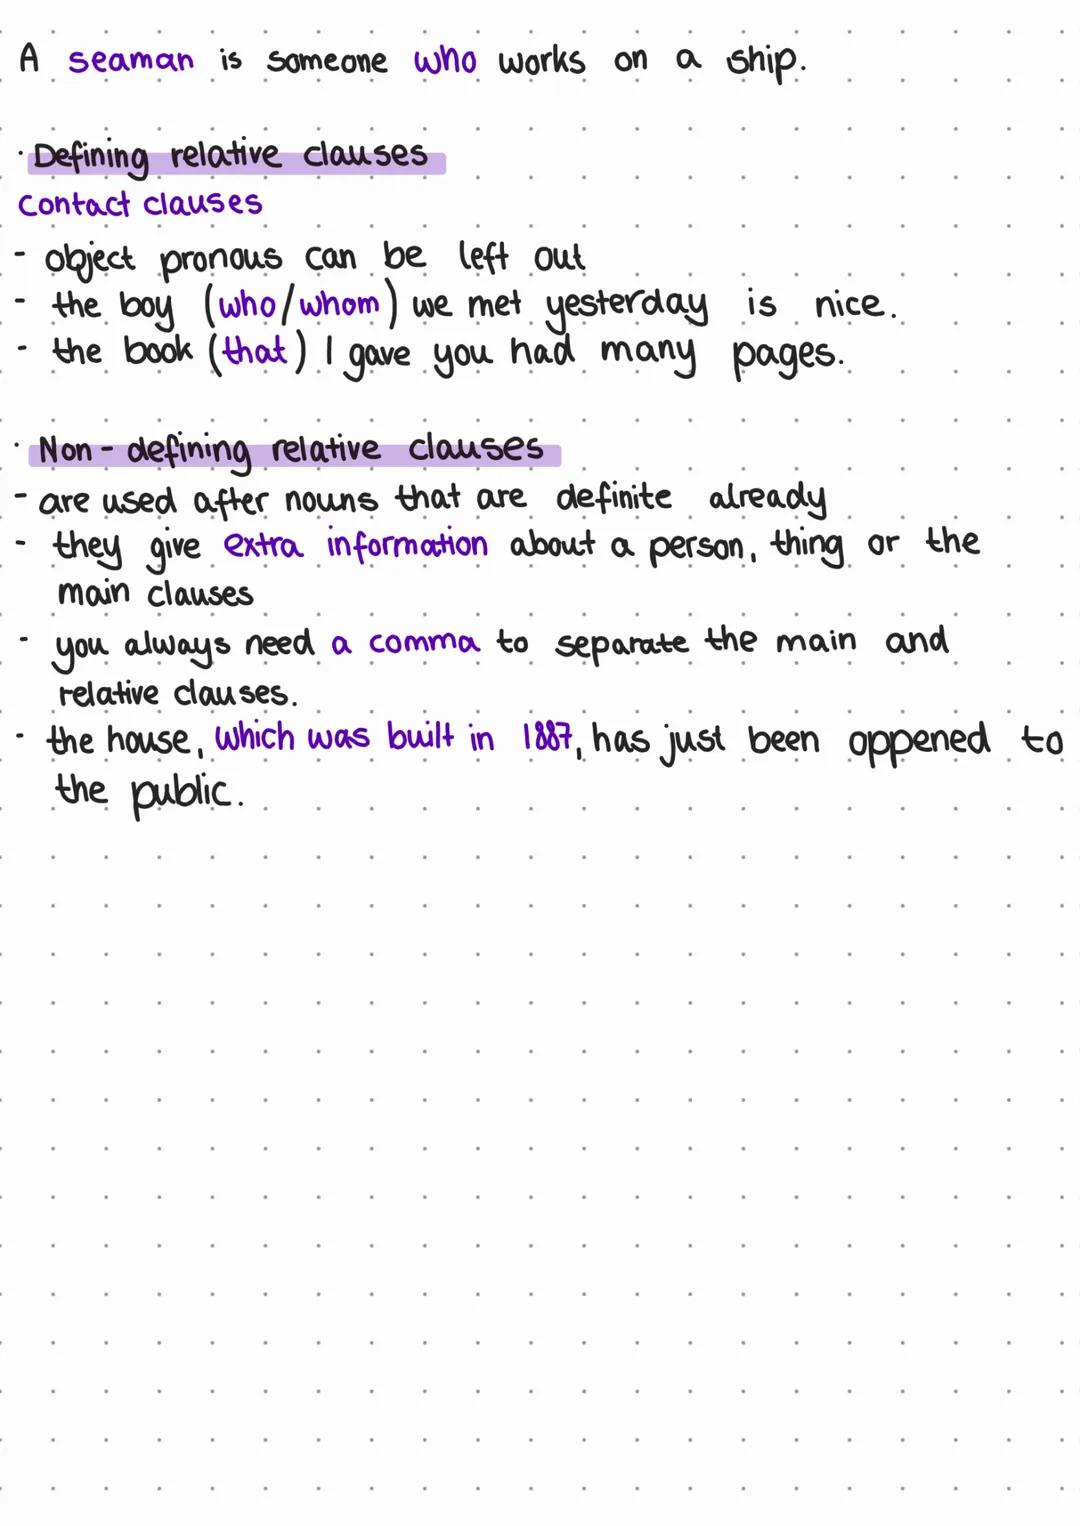 A seaman is someone who works on a ship.
· Defining relative clauses
contact clauses
- object pronous can be left out
- the boy (who/whom) we met yesterday is nice.
- the book (that) I gave you had many pages.
· Non-defining relative clauses
- are used after nouns that are definite already
- they give extra information about a person, thing or the
main clauses
- you always need a comma to separate the main and
relative clauses.
- the house, which was built in 1887, has just been oppened to
the public.